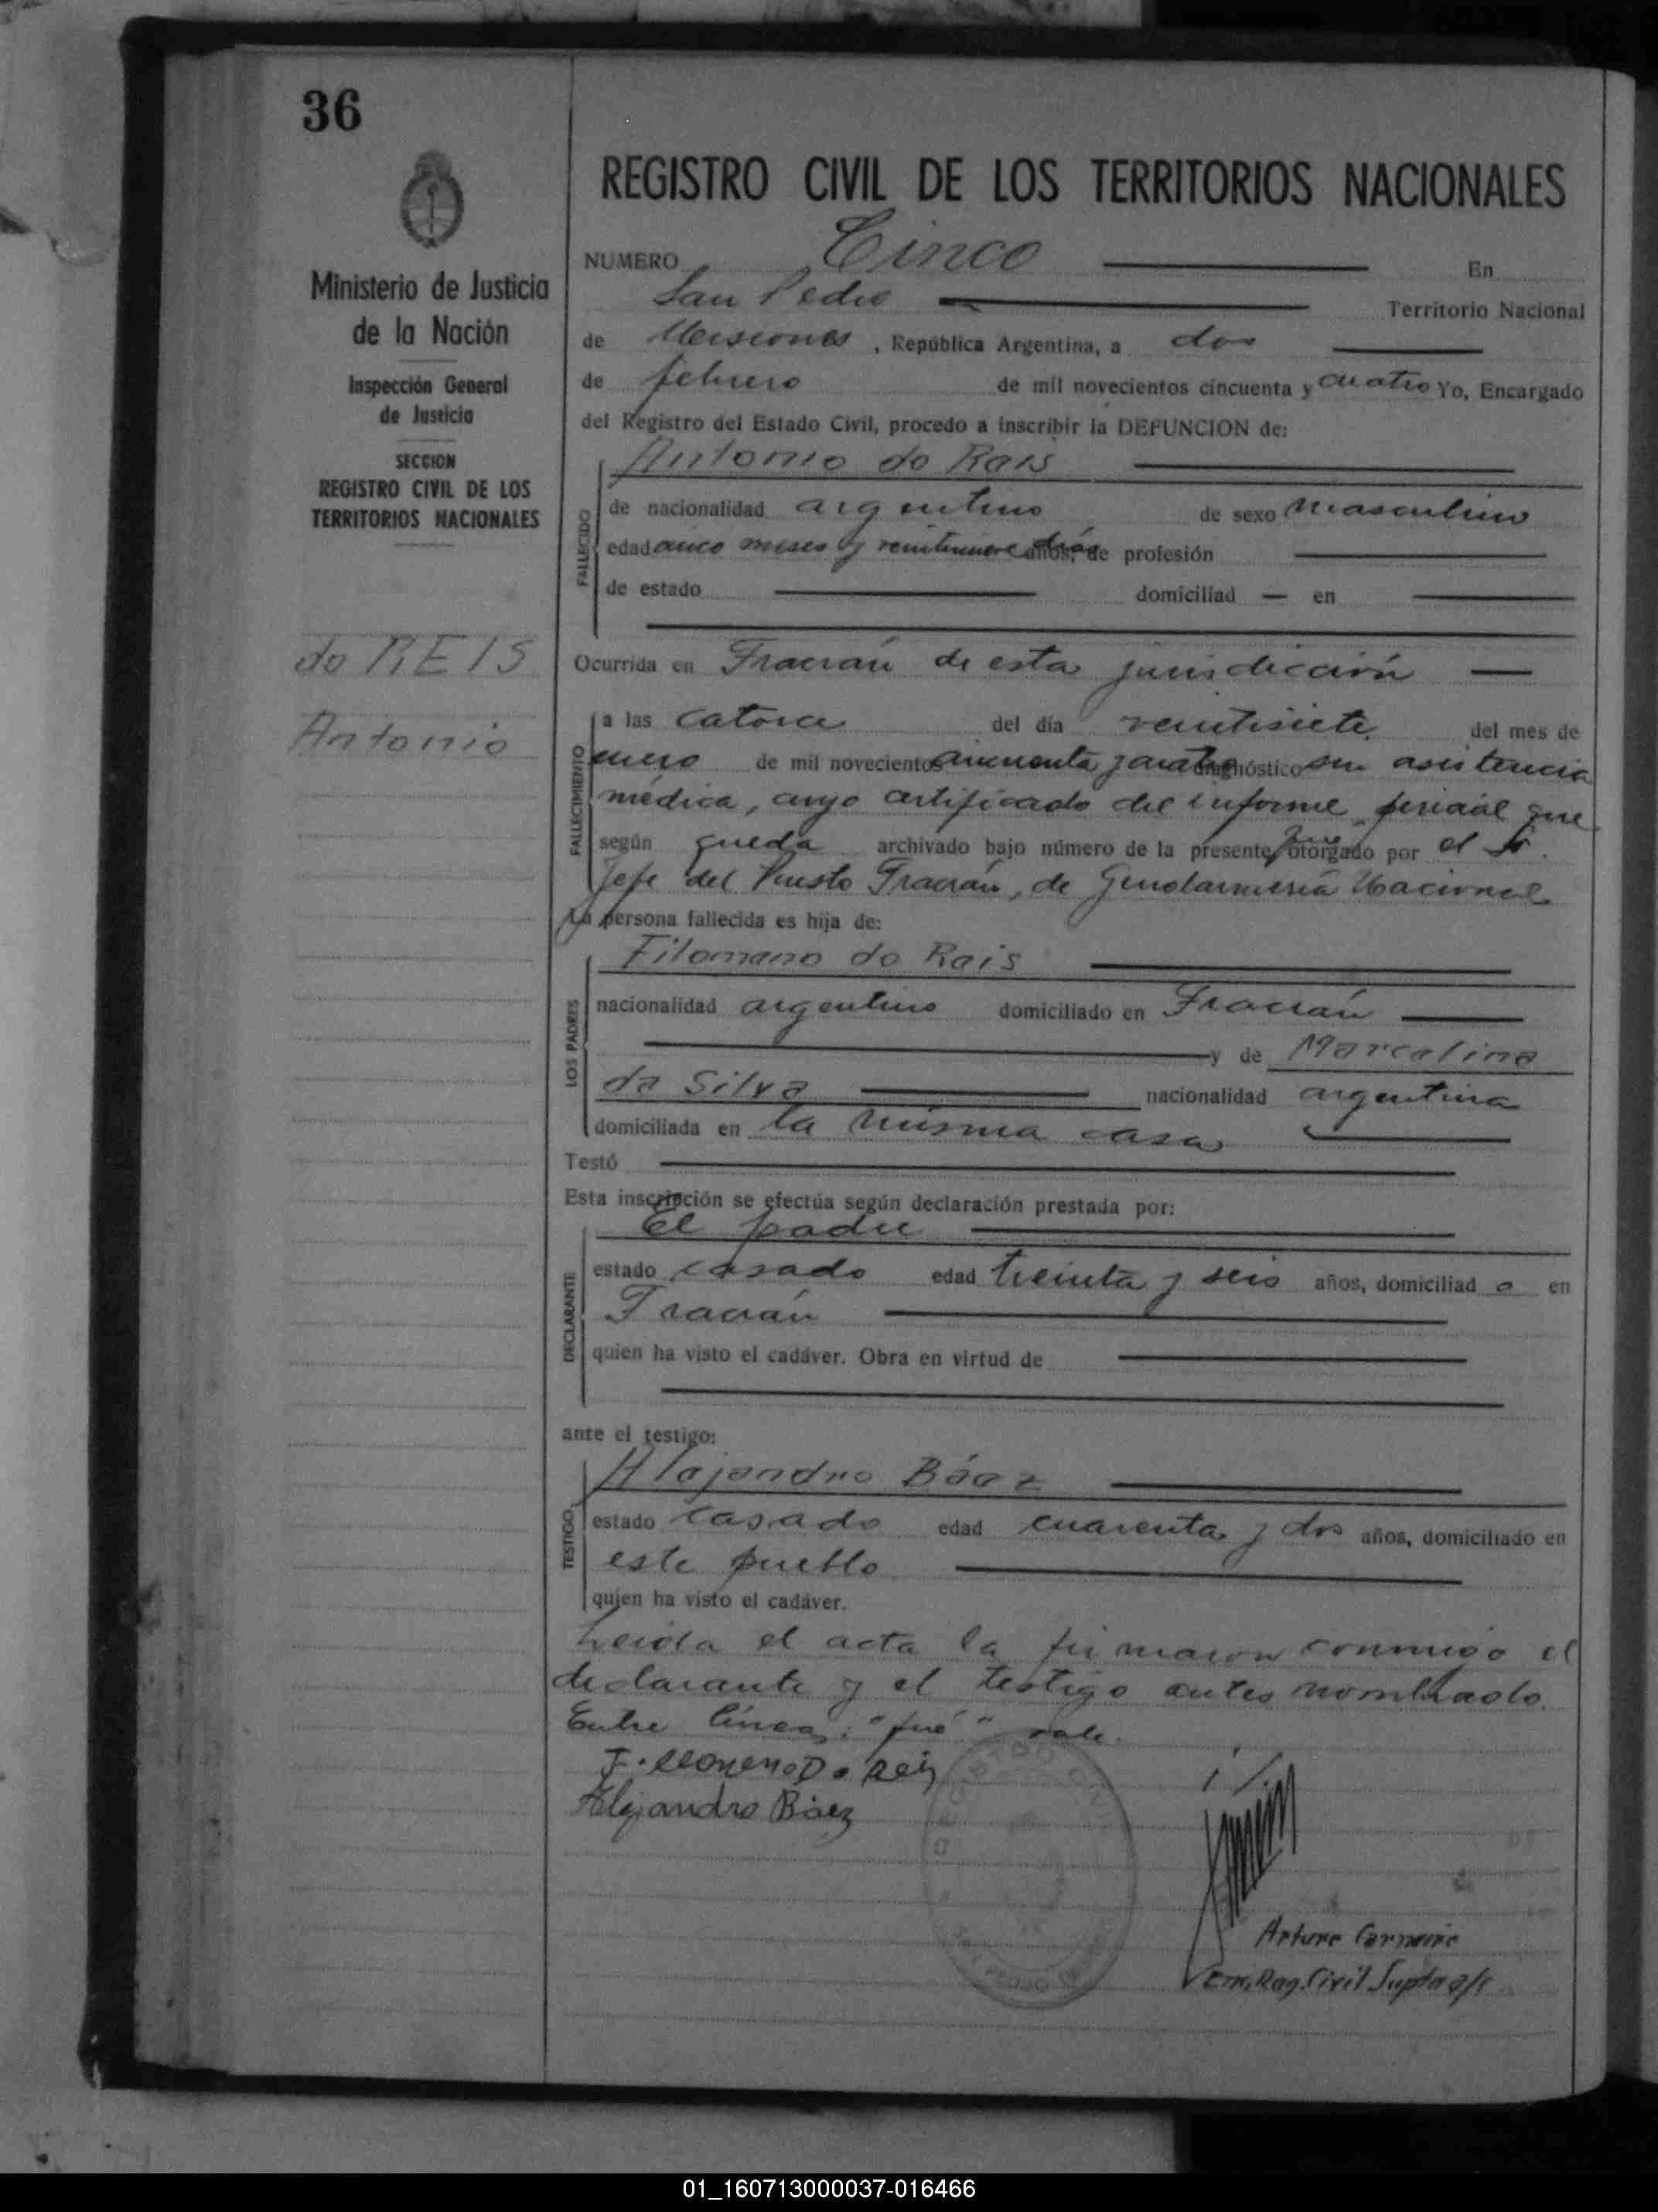 36
REGISTRO CIVIL DE LOS TERRITORIOS NACIONALES
Ministerio de Justicia
de la Nación
Inspección General
de Justicia
SECCION
REGISTRO CIVIL DE LOS
TERRITORIOS NACIONALES
do REIS
Antonio
NUMERO Cinco En
San Pedro Territorio Nacional
de Misiones, República Argentina, a dos
de febrero de mil novecientos cincuenta y cuatro Yo, Encargado
del Registro del Estado Civil, procedo a inscribir la DEFUNCION de:
Antonio do Reis
FALLECIDO
de nacionalidad argentino de sexo masculino
edad cinco meses y veintinueve días años, de profesión
de estado domiciliad — en
Ocurrida en Fracrán de esta jurisdicción
FALLECIMIENTO
a las catorce del día veintisiete del mes de
enero de mil novecientos cincuenta y cuatro diagnóstico sin asistencia
médica, cuyo certificado del informe pericial que
según queda archivado bajo número de la presente fué otorgado por el Sr.
Jefe del Puesto Fracrán, de Gendarmería Nacional
La persona fallecida es hija de:
LOS PADRES
Filomeno do Reis
nacionalidad argentino domiciliado en Fracrán
y de Marcelina
da Silva nacionalidad argentina
domiciliada en la misma casa
Testó
Esta inscripción se efectúa según declaración prestada por:
El padre
DECLARANTE
estado casado edad treinta y seis años, domiciliad o en
Fracrán
quien ha visto el cadáver. Obra en virtud de
ante el testigo:
Alejandro Báez
TESTIGO
estado casado edad cuarenta y dos años, domiciliado en
este pueblo
quien ha visto el cadáver.
Leida el acta la firmaron conmigo el
declarante y el testigo antes nombrado.
Entre líneas: "fué" vale.
Do Reis
Alejandro Báez
Arturo
Enc. Reg. Civil Supte a/c
01_160713000037-016466